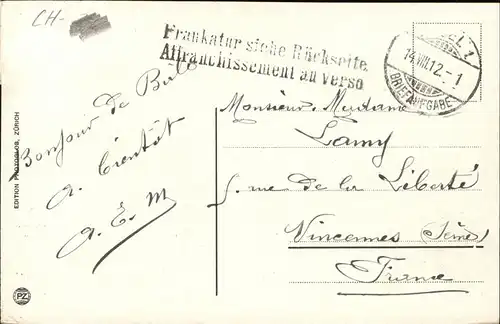 CH-
Frankatur siehe Rückseite
Affranchissement au verso
BASEL 1
14.VIII.12.-1
BRIEFAUFGABE
Bonjour de Bâle
A bientôt
A. E. M
Monsieur, Madame
Lamy
5. rue de la Liberté
Vincennes (Seine)
France
EDITION PHOTOGLOB, ZÜRICH
PZ